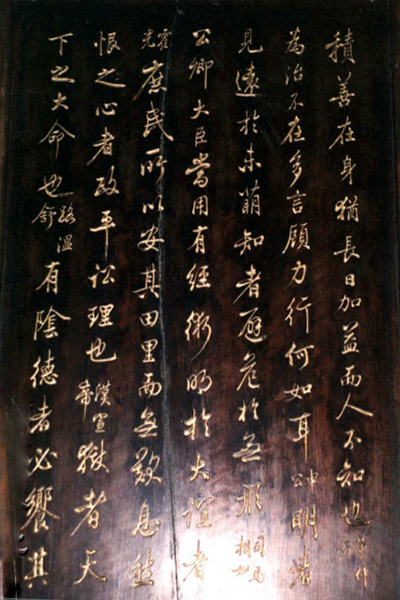 積善在身猶長日加益而人不知也董仲舒
為治不在多言顧力行何如耳申公明者
見遠於未萌知者避危於無形司馬相如
公卿大臣當用有經術明於大誼者
霍光庶民所以安其田里而無歎息愁
恨之心者政平訟理也漢宣帝獄者天
下之大命也路溫舒有陰德者必饗其